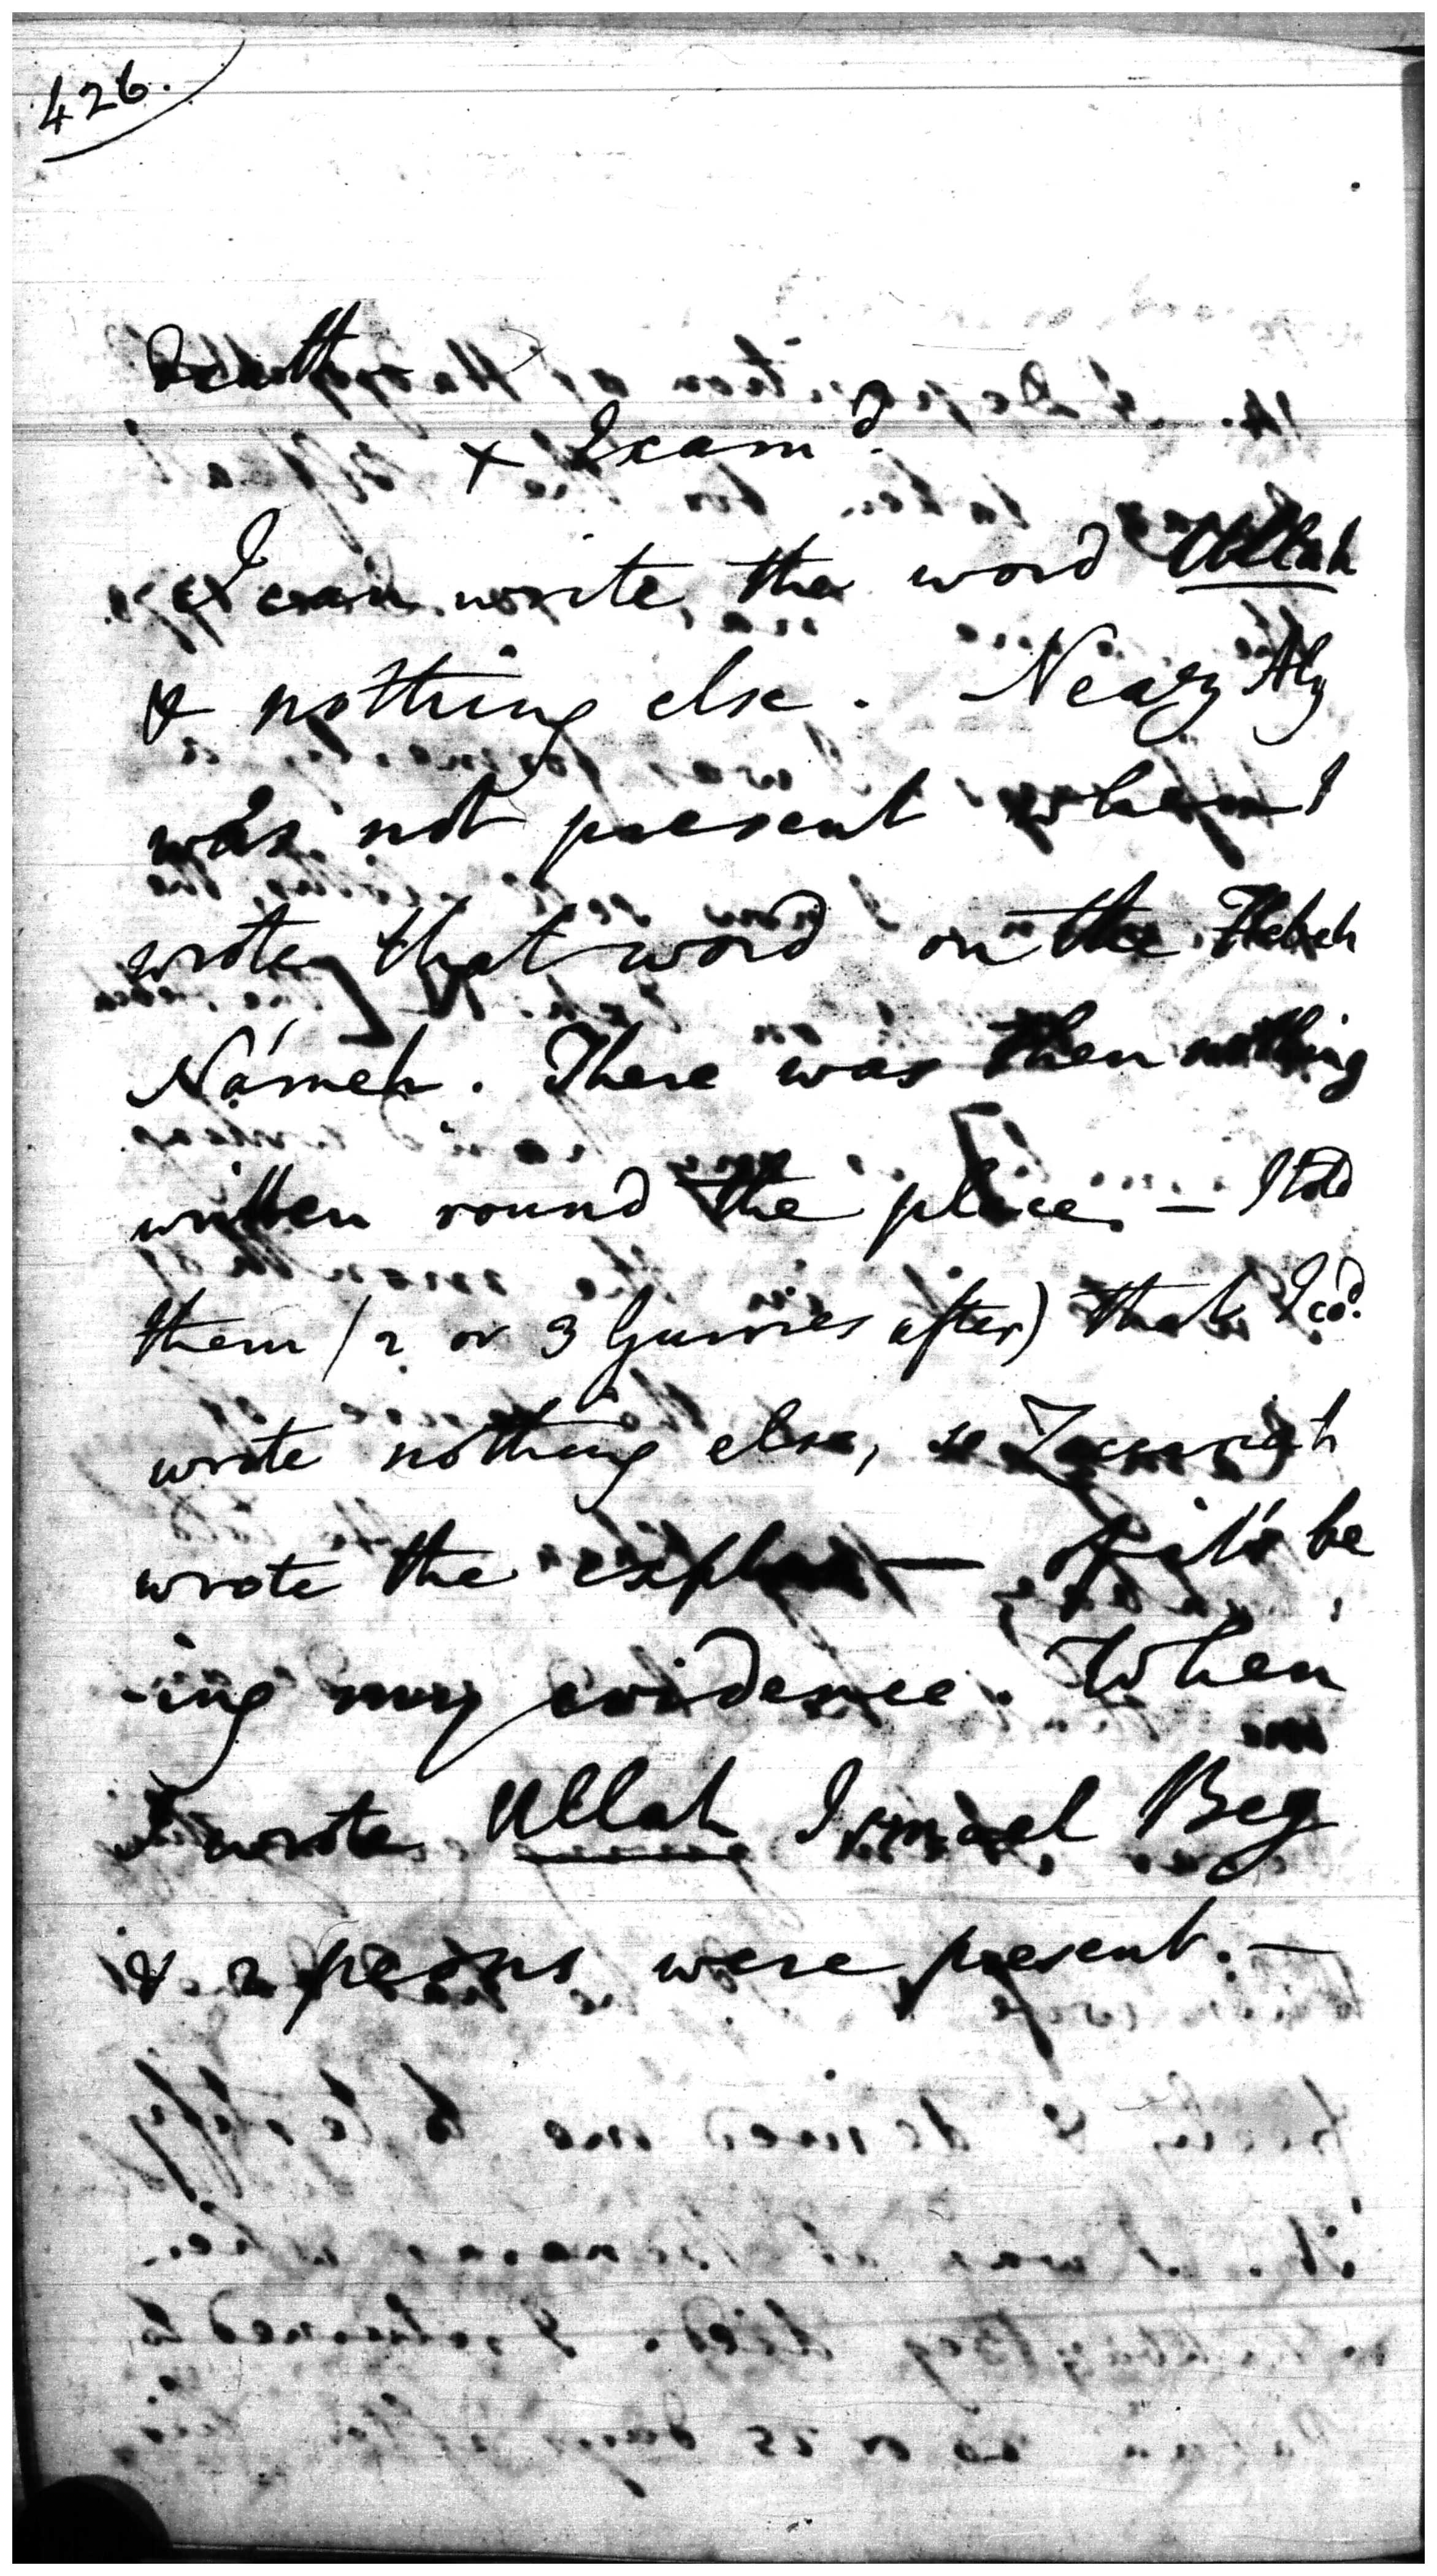 426.
Death
x Exam.d
I can write the word Ullah
& nothing else. Neazy Aly
was not present when I
wrote that word on the Hebeh
Námeh. There was then nothing
written round the place. — I told
them (2 or 3 Gurries after) that I cod.
wrote nothing else, so
wrote the — of it's be
-ing my evidence. When
I wrote Ullah Ismael Beg
& 2 peons were present. —